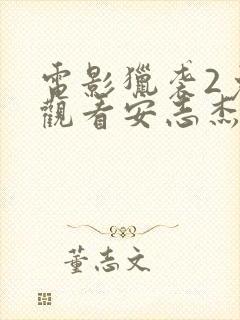 電影獵袭2
觀看安志杰
董志文